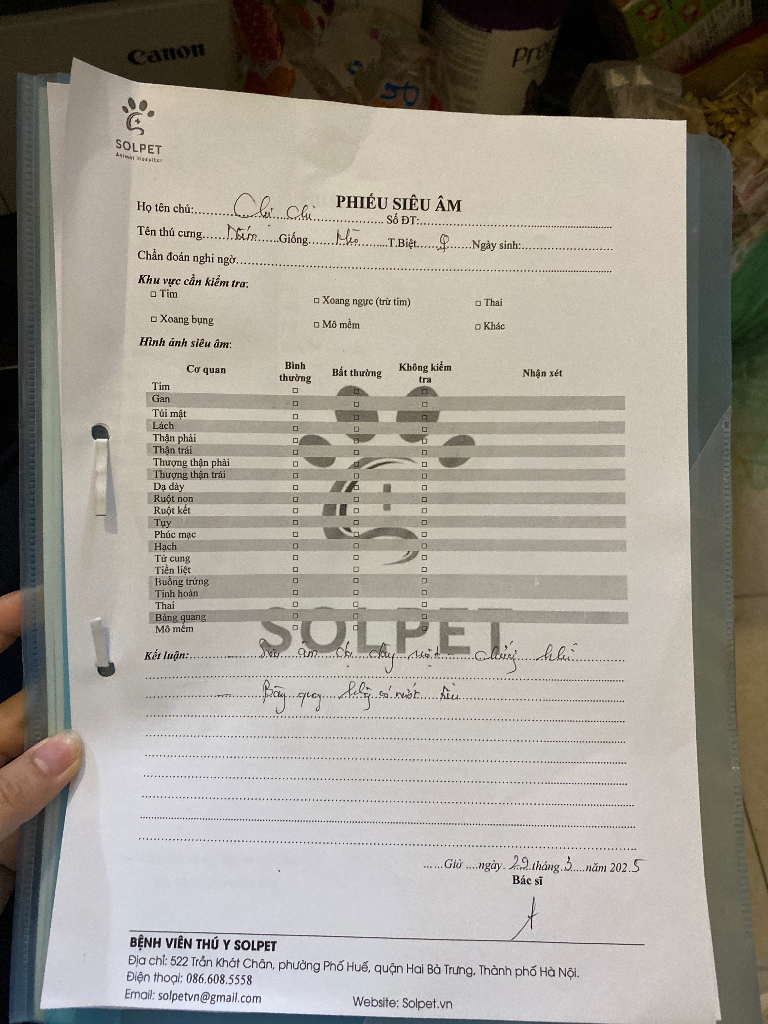 Canon
Pre
SOLPET
Animal Hospital
PHIẾU SIÊU ÂM
Họ tên chủ: Chi Chi Số ĐT:
Tên thú cưng Nấm Giống Mèo T.Biệt ♀ Ngày sinh:
Chẩn đoán nghi ngờ
Khu vực cần kiểm tra:
□ Tim □ Xoang ngực (trừ tim) □ Thai
□ Xoang bụng □ Mô mềm □ Khác
Hình ảnh siêu âm:
Cơ quan Bình thường Bất thường Không kiểm tra Nhận xét
Tim □ □ □
Gan □ □ □
Túi mật □ □ □
Lách □ □ □
Thận phải □ □ □
Thận trái □ □ □
Thượng thận phải □ □ □
Thượng thận trái □ □ □
Dạ dày □ □ □
Ruột non □ □ □
Ruột kết □ □ □
Tụy □ □ □
Phúc mạc □ □ □
Hạch □ □ □
Tử cung □ □ □
Tiền liệt □ □ □
Buồng trứng □ □ □
Tinh hoàn □ □ □
Thai □ □ □
Bàng quang □ □ □
Mô mềm □ □ □
SOLPET
Kết luận: âm dạ dày ruột khí
Bàng quang có nước tiểu
Giờ ngày 29 tháng 3 năm 2025
Bác sĩ
BỆNH VIỆN THÚ Y SOLPET
Địa chỉ: 522 Trần Khát Chân, phường Phố Huế, quận Hai Bà Trưng, Thành phố Hà Nội.
Điện thoại: 086.608.5558
Email: solpetvn@gmail.com Website: Solpet.vn